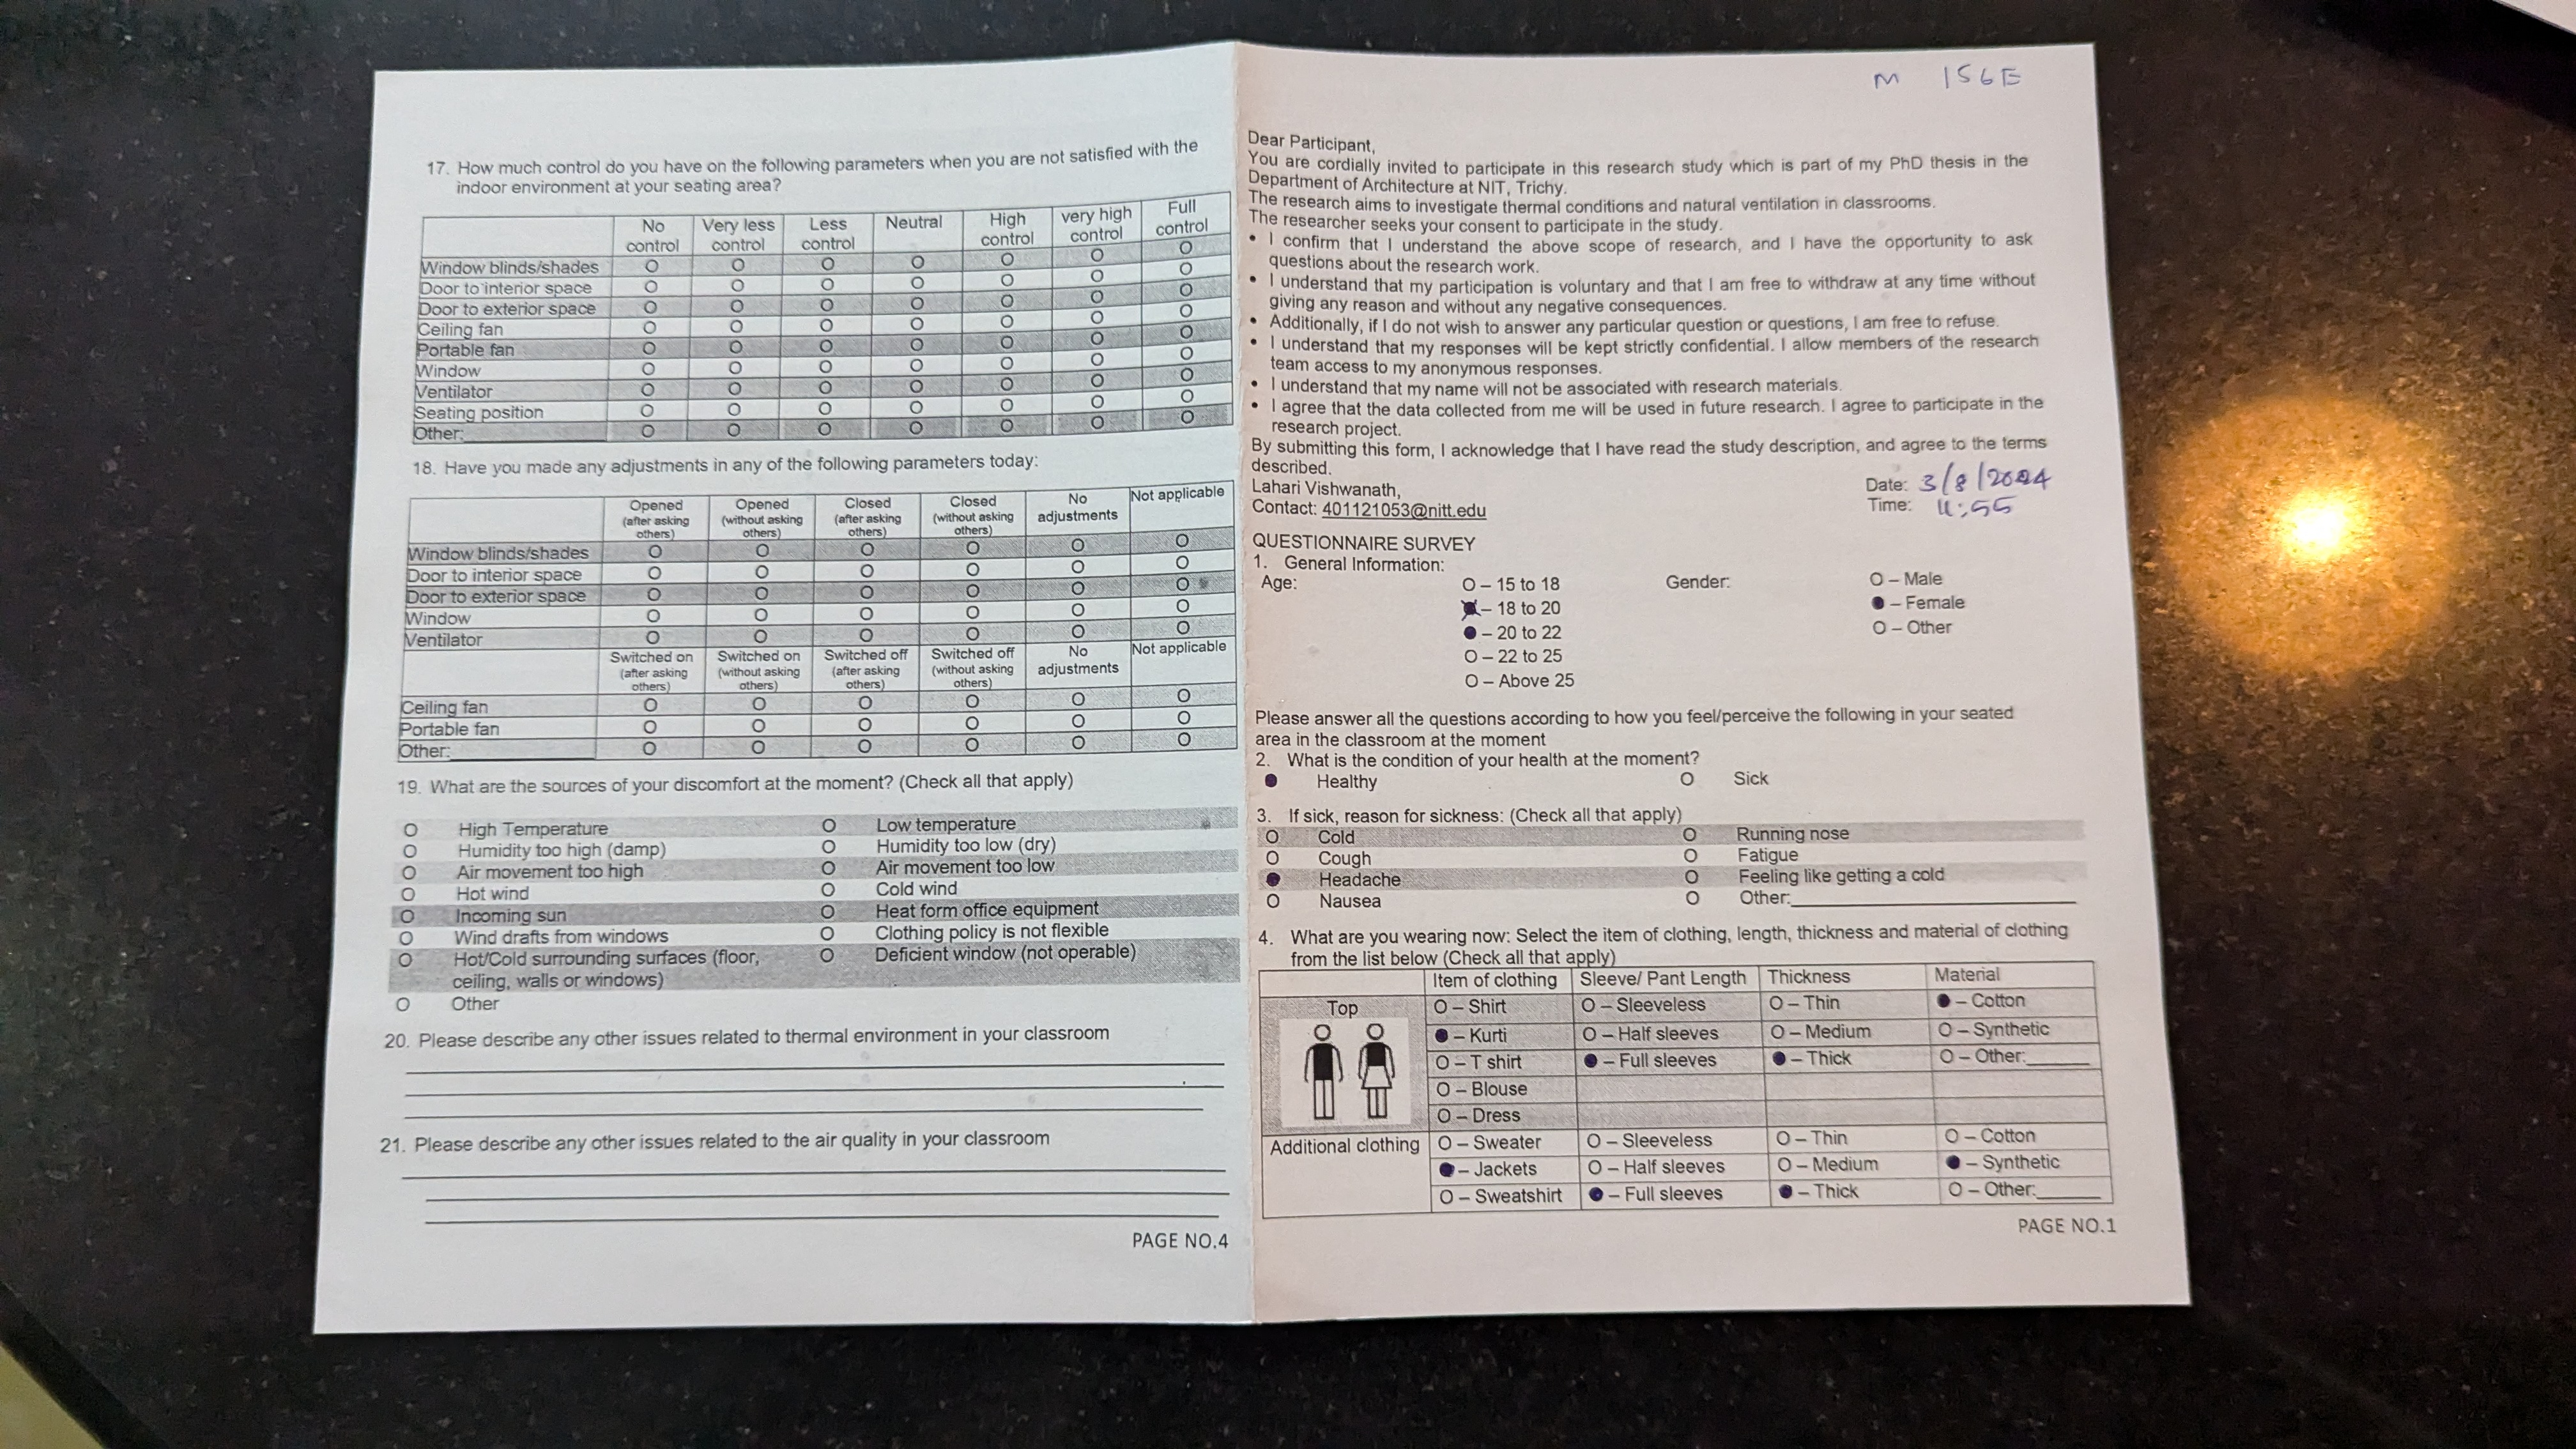 17. How much control do you have on the following parameters when you are not satisfied with the
indoor environment at your seating area?
No control Very less control Less control Neutral High control very high control Full control
Window blinds/shades O O O O O O O
Door to interior space O O O O O O O
Door to exterior space O O O O O O O
Ceiling fan O O O O O O O
Portable fan O O O O O O O
Window O O O O O O O
Ventilator O O O O O O O
Seating position O O O O O O O
Other:__________ O O O O O O O
18. Have you made any adjustments in any of the following parameters today:
Opened (after asking others) Opened (without asking others) Closed (after asking others) Closed (without asking others) No adjustments Not applicable
Window blinds/shades O O O O O O
Door to interior space O O O O O O
Door to exterior space O O O O O O
Window O O O O O O
Ventilator O O O O O O
Switched on (after asking others) Switched on (without asking others) Switched off (after asking others) Switched off (without asking others) No adjustments Not applicable
Ceiling fan O O O O O O
Portable fan O O O O O O
Other:__________ O O O O O O
19. What are the sources of your discomfort at the moment? (Check all that apply)
O High Temperature O Low temperature
O Humidity too high (damp) O Humidity too low (dry)
O Air movement too high O Air movement too low
O Hot wind O Cold wind
O Incoming sun O Heat form office equipment
O Wind drafts from windows O Clothing policy is not flexible
O Hot/Cold surrounding surfaces (floor, O Deficient window (not operable)
ceiling, walls or windows)
O Other
20. Please describe any other issues related to thermal environment in your classroom
21. Please describe any other issues related to the air quality in your classroom
PAGE NO.4
M 156E
Dear Participant,
You are cordially invited to participate in this research study which is part of my PhD thesis in the
Department of Architecture at NIT, Trichy.
The research aims to investigate thermal conditions and natural ventilation in classrooms.
The researcher seeks your consent to participate in the study.
• I confirm that I understand the above scope of research, and I have the opportunity to ask
questions about the research work.
• I understand that my participation is voluntary and that I am free to withdraw at any time without
giving any reason and without any negative consequences.
• Additionally, if I do not wish to answer any particular question or questions, I am free to refuse.
• I understand that my responses will be kept strictly confidential. I allow members of the research
team access to my anonymous responses.
• I understand that my name will not be associated with research materials.
• I agree that the data collected from me will be used in future research. I agree to participate in the
research project.
By submitting this form, I acknowledge that I have read the study description, and agree to the terms
described.
Lahari Vishwanath, Date: 3/8/2024
Contact: 401121053@nitt.edu Time: 11:55
QUESTIONNAIRE SURVEY
1. General Information:
Age: O – 15 to 18 Gender: O – Male
– 18 to 20 ● – Female
● – 20 to 22 O – Other
O – 22 to 25
O – Above 25
Please answer all the questions according to how you feel/perceive the following in your seated
area in the classroom at the moment
2. What is the condition of your health at the moment?
● Healthy O Sick
3. If sick, reason for sickness: (Check all that apply)
O Cold O Running nose
O Cough O Fatigue
● Headache O Feeling like getting a cold
O Nausea O Other:__________
4. What are you wearing now: Select the item of clothing, length, thickness and material of clothing
from the list below (Check all that apply)
Item of clothing Sleeve/ Pant Length Thickness Material
Top O – Shirt O – Sleeveless O – Thin ● – Cotton
● – Kurti O – Half sleeves O – Medium O – Synthetic
O – T shirt ● – Full sleeves ● – Thick O – Other:______
O – Blouse
O – Dress
Additional clothing O – Sweater O – Sleeveless O – Thin O – Cotton
● – Jackets O – Half sleeves O – Medium ● – Synthetic
O – Sweatshirt ● – Full sleeves ● – Thick O – Other:______
PAGE NO.1